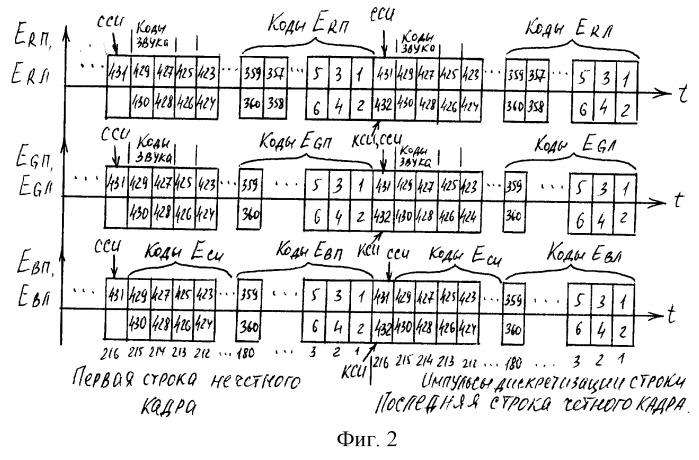 ERП, ERЛ
ССИ Коды звука Коды ERП ССИ Коды звука Коды ERЛ
... 431 429 427 425 423 ... 359 357 ... 5 3 1 431 429 427 425 423 ... 359 357 ... 5 3 1
430 428 426 424 360 358 6 4 2 432 430 428 426 424 360 358 6 4 2
t
EGП, EGЛ
ССИ Коды звука Коды EGП КСИ, ССИ Коды звука Коды EGЛ
... 431 429 427 425 423 ... 359 ... 5 3 1 431 429 427 425 423 ... 359 ... 5 3 1
430 428 426 424 360 6 4 2 432 430 428 426 424 360 6 4 2
t
EВП, EВЛ
ССИ Коды Eси Коды EВП КСИ ССИ Коды Eси Коды EВЛ
... 431 429 427 425 423 ... 359 ... 5 3 1 431 429 427 425 423 ... 359 ... 5 3 1
430 428 426 424 360 6 4 2 432 430 428 426 424 360 6 4 2
t
216 215 214 213 212 ... 180 ... 3 2 1 КСИ 216 215 214 213 212 ... 180 ... 3 2 1
Первая строка нечетного кадра
Импульсы дискретизации строки
Последняя строка четного кадра.
Фиг. 2